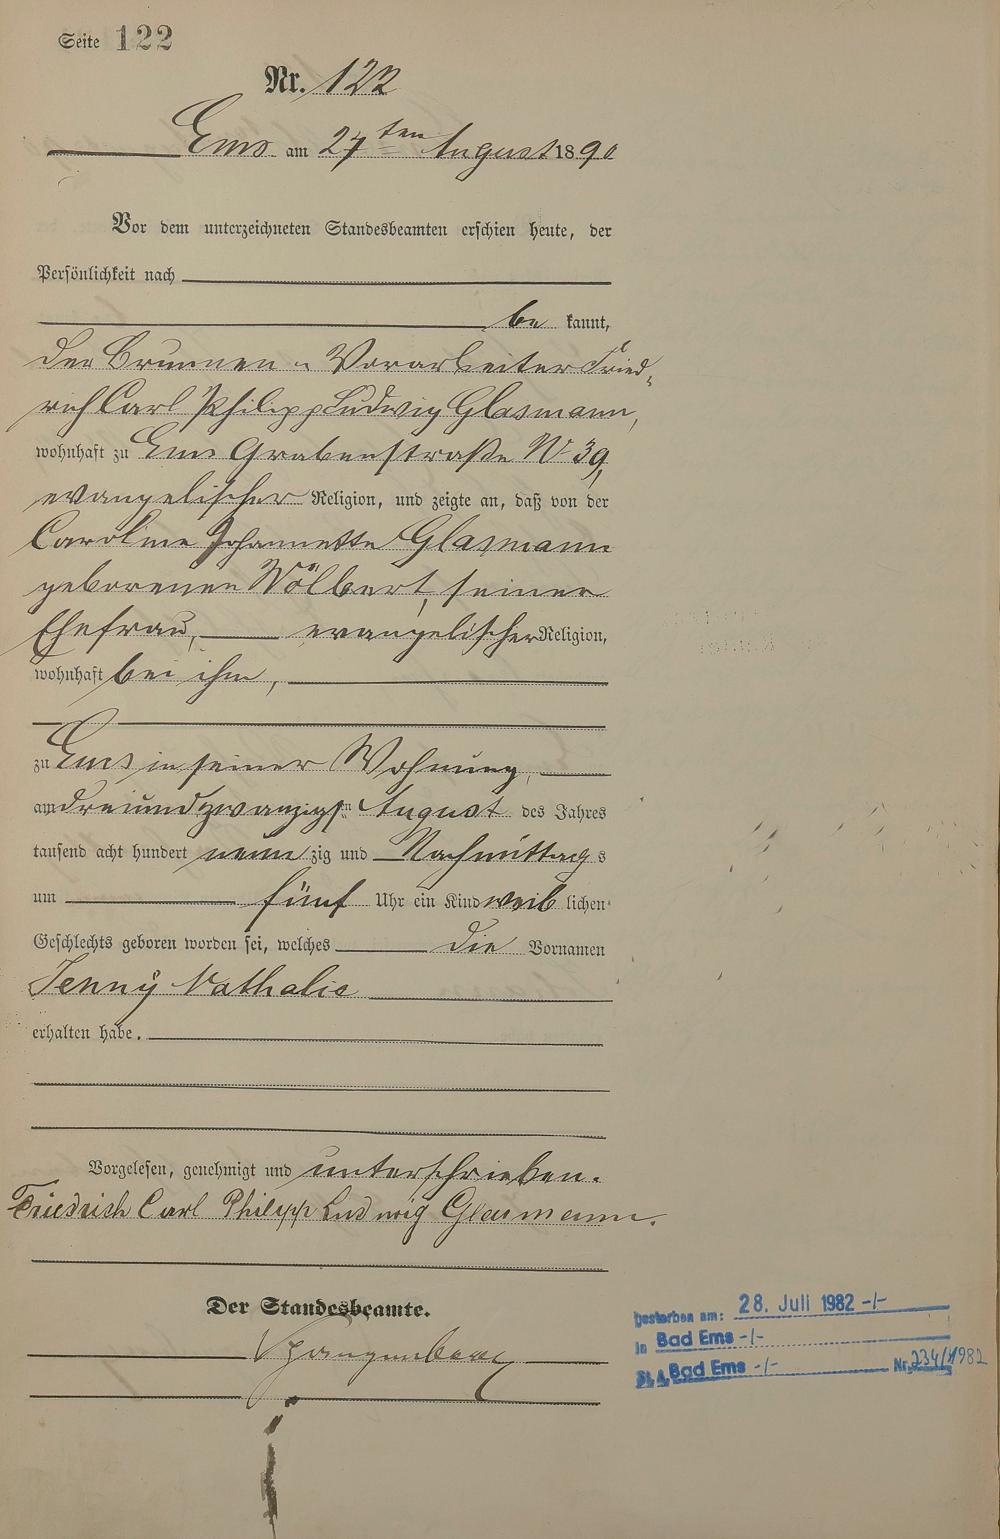 Seite 122
Nr. 122
Ems am 27ten August 1890
Vor dem unterzeichneten Standesbeamten erschien heute, der
Persönlichkeit nach
be kannt,
der Brunnen - Vorarbeiter Fried-
rich Carl Philipp Ludwig Glasmann,
wohnhaft zu Ems Grabenstraße No 39,
evangelischer Religion, und zeigte an, daß von der
Caroline Johannette Glasmann
geborenen Wölbert, seiner
Ehefrau, evangelischer Religion,
wohnhaft bei ihm,
zu Ems in seiner Wohnung,
am dreiundzwanzigsten August des Jahres
tausend acht hundert neun zig und Nachmittag s
um fünf Uhr ein Kind weib lichen
Geschlechts geboren worden sei, welches die Vornamen
Jenny Nathalie
erhalten habe.
Vorgelesen, genehmigt und unterschrieben.
Friedrich Carl Philipp Ludwig Glasmann.
Der Standesbeamte.
Spangenberg
gestorben am: 28. Juli 1982 -/-
in Bad Ems -/-
St. A. Bad Ems -/- Nr. 234/1982